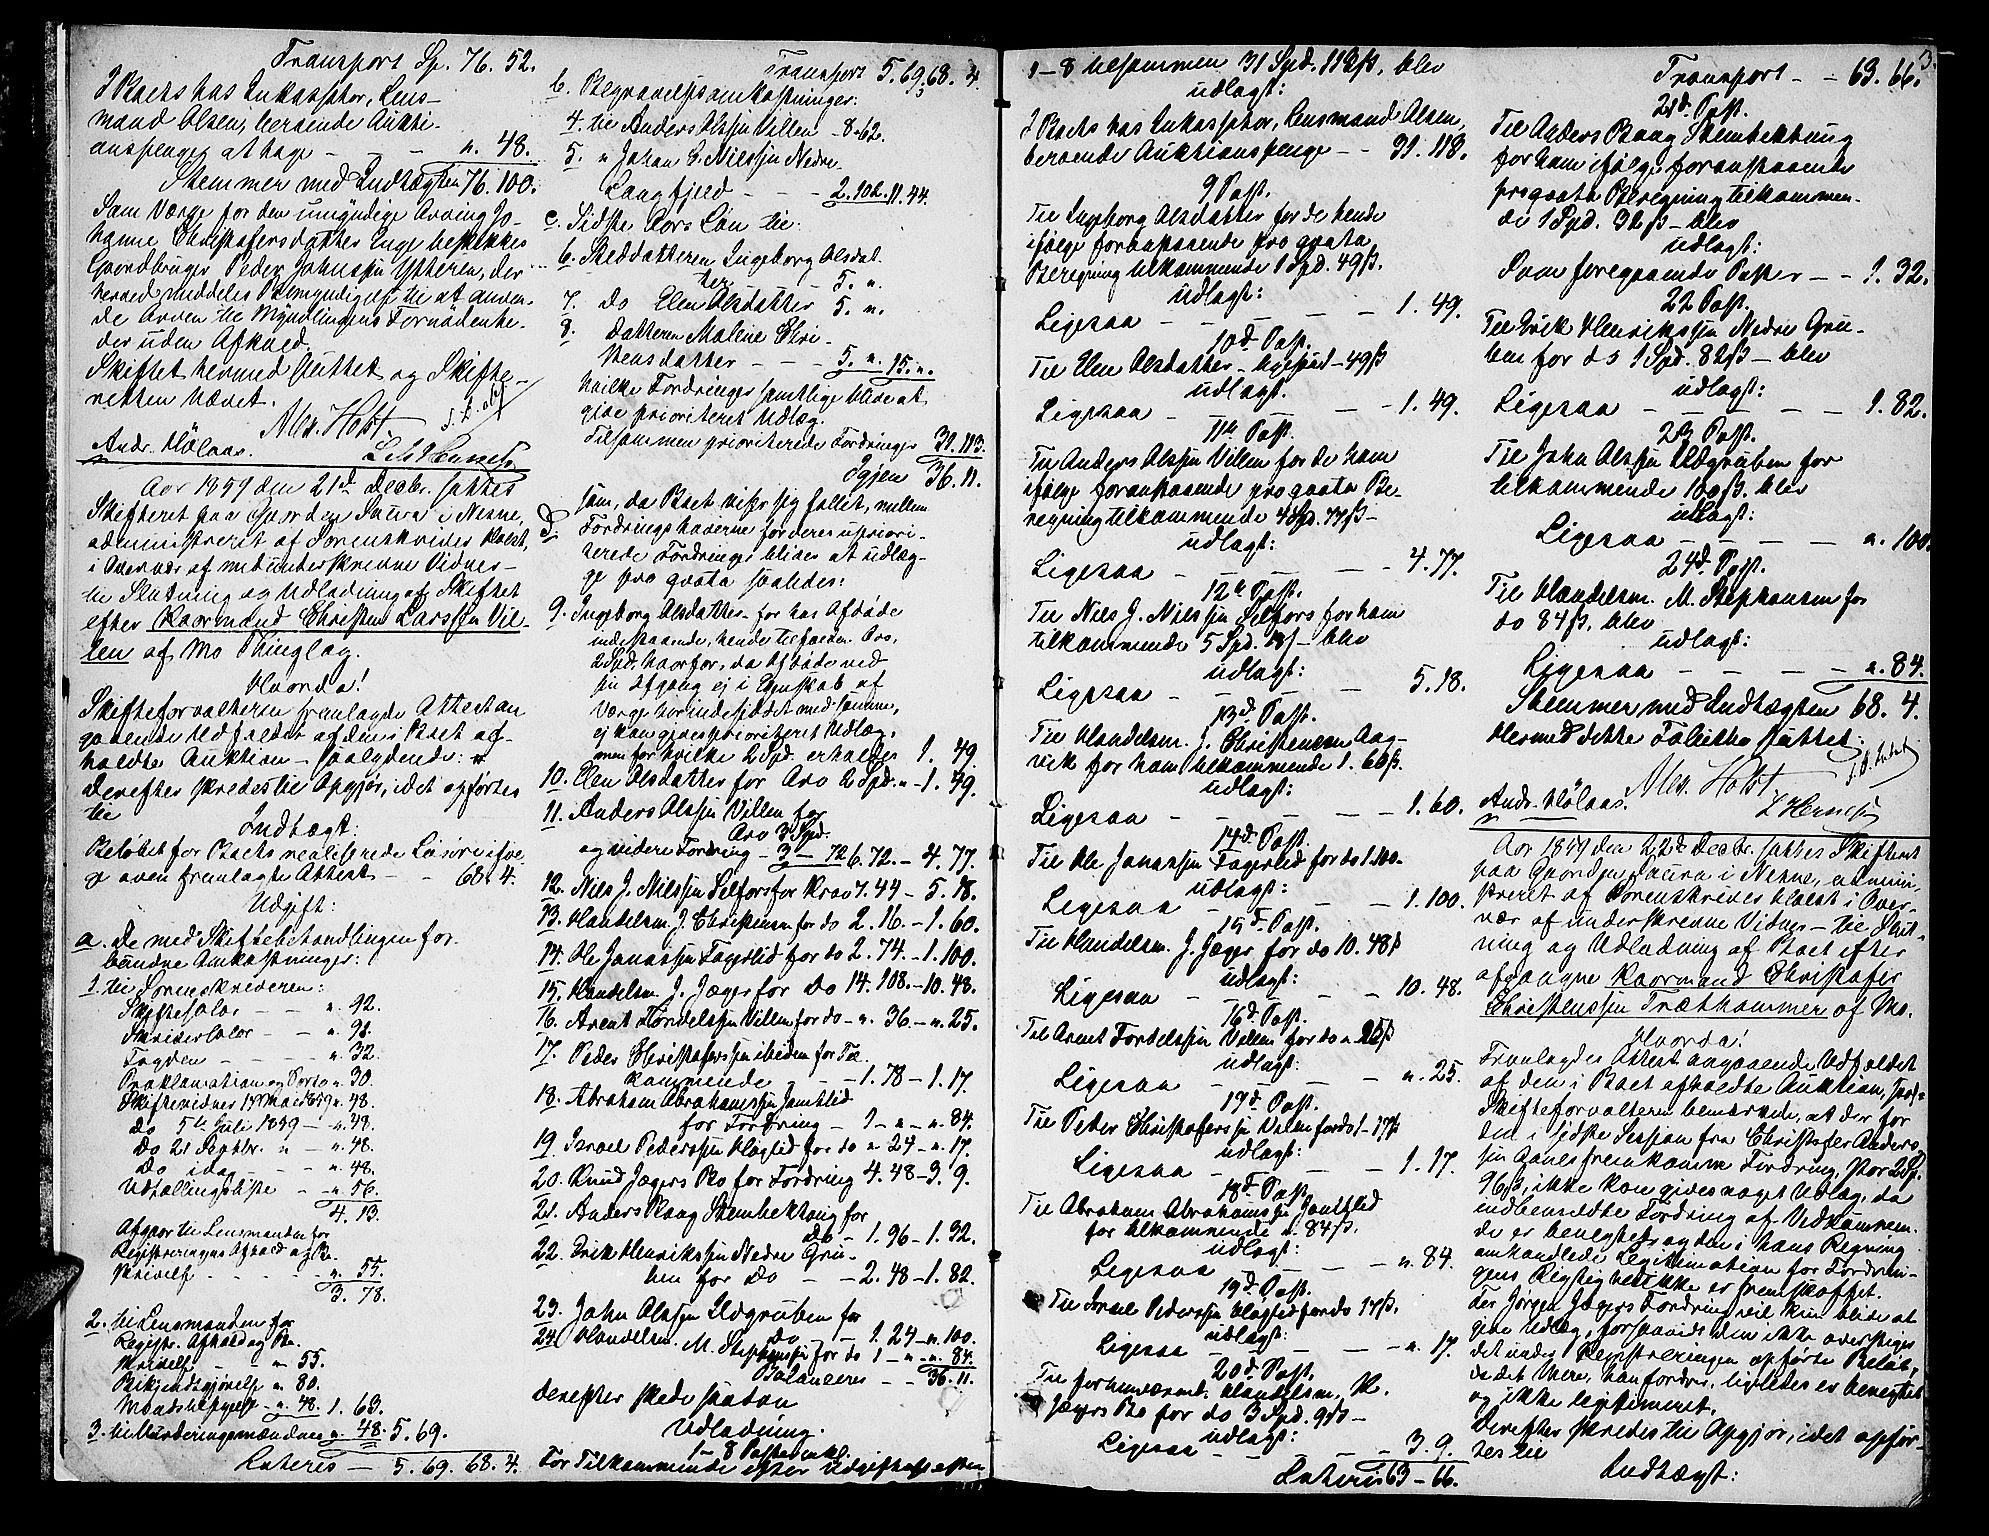 Transport Sp. 76. 52.
I Boets hos Inkassator, Lens-
mand Olsen, beroende Aukti-
onspenge at hæge - - - „. 48.
Stemmer med Indtægten 76. 100.
Som Værge for den umyndige Arving Jo-
hanne Christofersdatter Enge beskikkes
Gaardbruger Peder Johnssen Ytteren, der
herved meddeles Bemyndigelse til at anven-
de Arven til Myndlingens Fornødenhe-
der uden Afkald.
Skiftet hermed sluttet og Skifte-
retten hævet.
Alex. Holst
Andr. Mölaas.
Aar 1859 den 21de Decbr. sattes
Skifteret paa Gaarden Saura i Nesne,
administreret af Sorenskriver Holst,
i Overvær af medunderskrevne Vidner -
til Slutning og Udlodning af Skiftet
efter Kaarmand Christen Larssen Vil-
len af Mo Thinglag.
Hvorda!
Skifteforvalteren fremlagde Attest an
gaaende Udfaldet af den i Boet af-
holdte Auktion - saalydende:
Derefter skredes til Opgjør, idet opførtes
til
Indtægt:
Beløbet for Boets realiserede Løsøre iføl-
ge oven fremlagte Attest - - 68. 4.
Udgift:
a. De med Skiftebehandlingen for-
bundne Omkostninger:
1. til Sorenskriveren:
Skiftesalær - - „. 92.
Skriversalær - - „. 96.
Tagden - - - - „. 32.
Proklamation og Porto „. 30.
Do 5te Juli 1859 - „. 48.
Do 21 Septbr. „ - „. 48.
Do idag - - - „. 48.
Udtællingsliste - - „. 56
4. 13.
Afgaar til Lensmanden for
Registreringens Afhold og Be-
skrivelse - - - - - „. 55.
3. 78.
2. til Lensmanden for
Registr. Afhold og Be-
skrivelse - - „ 55.
Bekjendtgjørelse „. 80.
„. 48. 1. 63.
3. til Vurderingsmændene „. 48. 5. 69.
Lateris - 5. 69. 68. 4.
Transport 5. 69. 68. 4
b. Begravelsesomkostninger:
4. til Anders Olssen Villen - 8. 62.
5. „ Johan C. Nilssen Nedre
Langfjeld - - - 2. 102. 11. 44.
c. Sidste Aars Løn til:
6. Steddatteren Ingeborg Olsdat-
ter - - - 5. „.
7. do Elen Olsdatter 5. „.
8. Datteren Maline Chri-
stensdatter - - - 5. „. 15. „.
hvilke Fordringer samtlige blive at
give prioriteret Udlæg.
Tilsammen prioriterede Fordringer 31. 113.
Igjen 36. 11.
som, da Boet viser sig fallet, mellem
d. Fordringshaverne for deres uprior-
terede Fordringer blive at udlæg-
ge pro qvota saaledes:
9. Ingeborg Olsdatter for hos Afdøde
indestaaende, hende tilfalden Arv,
2 Spd. hvorfor, da Afdøde ved
sin Afgang ej i Egenskab af
Værge har indesiddet med samme,
ej kan gives prioriteret Udlæg,
men for hvilke 2 Spd. erholdes 1. 49.
10. Elen Olsdatter for Arv 2 Spd. „ - 1. 49.
11. Anders Olssen Villen for
Arv 3 Spd.
og videre Fordring - 3 - 72 6. 72. - 4. 77.
12. Nils J. Nilssen Selfors for Krav 7. 44 - 5. 18.
13. Handelsm. J. Christensen for do 2. 16. - 1. 60.
14. Ole Jonassen Fagerlid for do 2. 74. - 1. 100.
15. Handelsm. J. Jæger for Do 14. 108. - 10. 48.
16. Arent Tordelssen Villen for do - „. 36 - „. 25.
17. Peder Christoferssen ibiden for Til-
kommende - - 1. 78 - 1. 17.
18. Abraham Abrahamssen Jamtlid
for Fordring - 1 - „ - „. 84.
19. Israel Pederssen Haglid for do „ 24 - „. 17.
20. Knud Jægers Bo for Fordring 4. 48 - 3. 9.
21. Anders Baag Stenbektang for
Do - 1. 96 - 1. 32.
22. Erik Henrikssen Nedre Gru-
ben for Do - - 2. 48 - 1. 82.
23. John Olssen Udgruben for
Do - - 1. 24 - „. 100.
24. Handelsm. M. Stephanssen for do 1 - „ - „. 84.
Balancere - - 36. 11.
Derefter skede saadan
Udlodning.
1 - 8 Post inkl.
For Tilkommende efter Udgiftsposten
1 - 8 tilsammen 31 Spd. 118 ß. blev
udlagt:
I Boets hos Inkassator, Lensmand Olsen,
beroende Auktionspenge - - 31. 118.
9 Post.
Til Ingeborg Olsdatter for de hende
ifølge foranstaaende pro qvota
Beregning tilkommende 1 Spd. 49 ß.
udlagt:
Ligesaa - - - - - 1. 49.
10de Post.
Til Elen Olsdatter - ligesaa - 49 ß
udlagt.
Ligesaa - - - - 1. 49.
11te Post.
Til Anders Olssen Villen for de ham
ifølge foranstaaende pro qvota Be-
regning tilkommende 4 Spd. 77 ß -
udlagt:
Ligesaa - - - - 4. 77.
12te Post.
Til Nils J. Nilssen Selfors for ham
tilkommende 5 Spd. 18 ß - blev
udlagt:
Ligesaa - - - - 5. 18.
13de Post.
Til Handelsm. J. Christensen Aag-
vik for ham tilkommende 1. 60 ß.
udlagt:
Ligesaa - - - - 1. 60.
14de Post.
Til Ole Jonassen Fagerlid for do 1. 100.
udlagt:
Ligesaa - - - - 1. 100.
15de Post.
Til Handelsm. J. Jæger for do 10. 48 ß
udlagt:
Ligesaa - - - - 10. 48.
16de Post.
Til Arent Tordelssen Villen for do „. 25 ß
udlagt:
Ligesaa - - - - „. 25.
17de Post.
Til Peder Christoferssen Villen for do 1 - 17 ß
udlagt:
Ligesaa - - - - 1. 17.
18de Post.
Til Abraham Abrahamssen Jamtlid
for tilkommende „. 84 ß.
udlagt:
Ligesaa - - - - „. 84.
19de Post.
Til Israel Pederssen Haglid for do 17 ß.
udlagt:
Ligesaa - - - - „. 17.
20de Post.
Til forhenværende Handelsm. K.
Jægers Bo for do 3 Spd. 9 ß -
udlagt:
Ligesaa - - - - 3. 9.
Lateris 63 - 66.
3.
Transport - - 63. 66.
21de Post.
Til Anders Baag Stenbektang
for ham ifølge foranstaaende
pro qvota Beregning tilkommen-
de 1 Spd. 32 ß - blev
udlagt:
Som foregaaende Poster - - 1. 32.
22 Post.
Til Erik Henrikssen Nedre Gru-
ben for do 1 Spd. 82 ß - blev
udlagt:
Ligesaa - - - - 1. 82.
23de Post.
Til John Olssen Udgruben for
tilkommende 100 ß. blev
udlagt:
Ligesaa - - - - „. 100.
24de Post.
Til Handelsm. M. Stephansen for
do 84 ß. blev
udlagt:
Ligesaa - - - - „. 84.
Stemmer med Indtægten 68. 4.
Hermed dette Fallitbo sluttet.
Alex. Holst
Andr. Mölaas.
Aar 1859 den 22de Decbr. sattes Skifteret
paa Gaarden Saura i Nesne, admini-
streret af Sorenskriver Holst i Over-
vær af underskrevne Vidner - til Slut-
ning og Udlodning af Boet efter
afgangne Kaarmand Christofer
Christenssen Træthammer af Mo.
Hvorda!
Fremlagdes Attest angaaende Udfaldet
af den i Boet afholdte Auktion,
Skifteforvalteren bemærkede, at der for
den i sidste Session fra Christofer Anders-
sen fremkomne Fordring, stor 2 Sp.
96 ß, ikke kan gives noget Udlæg, da
indbemeldte Fordring af Vedkommen-
de er benegtet og den i hans Regning
omhandlede Legitimation for Fordrin-
gens Rigtighed ikke er fremskaffet.
For Jørgen Jægers Fordring vil kun blive at
give Udlæg, forsaavidt den ikke overstiger
det under Registreringen opførte Beløb,
da det Mere, han fordrer, ligeledes er benegtet
og ikke legitimeret.
Derefter skredes til Opgjør, idet opfør-
tes til
Indtægt: